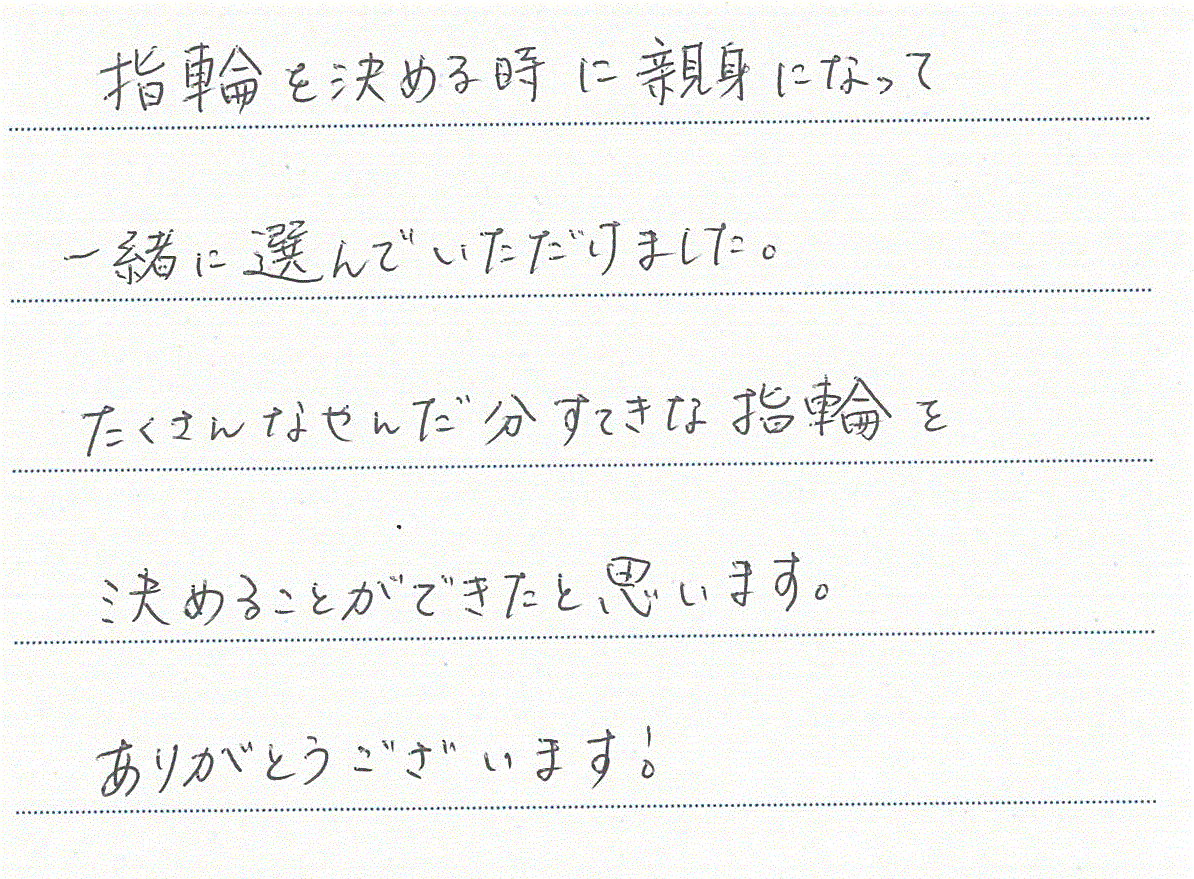 指輪を決める時に親身になって
一緒に選んでいただけました。
たくさんなやんだ分すてきな指輪を
決めることができたと思います。
ありがとうございます!